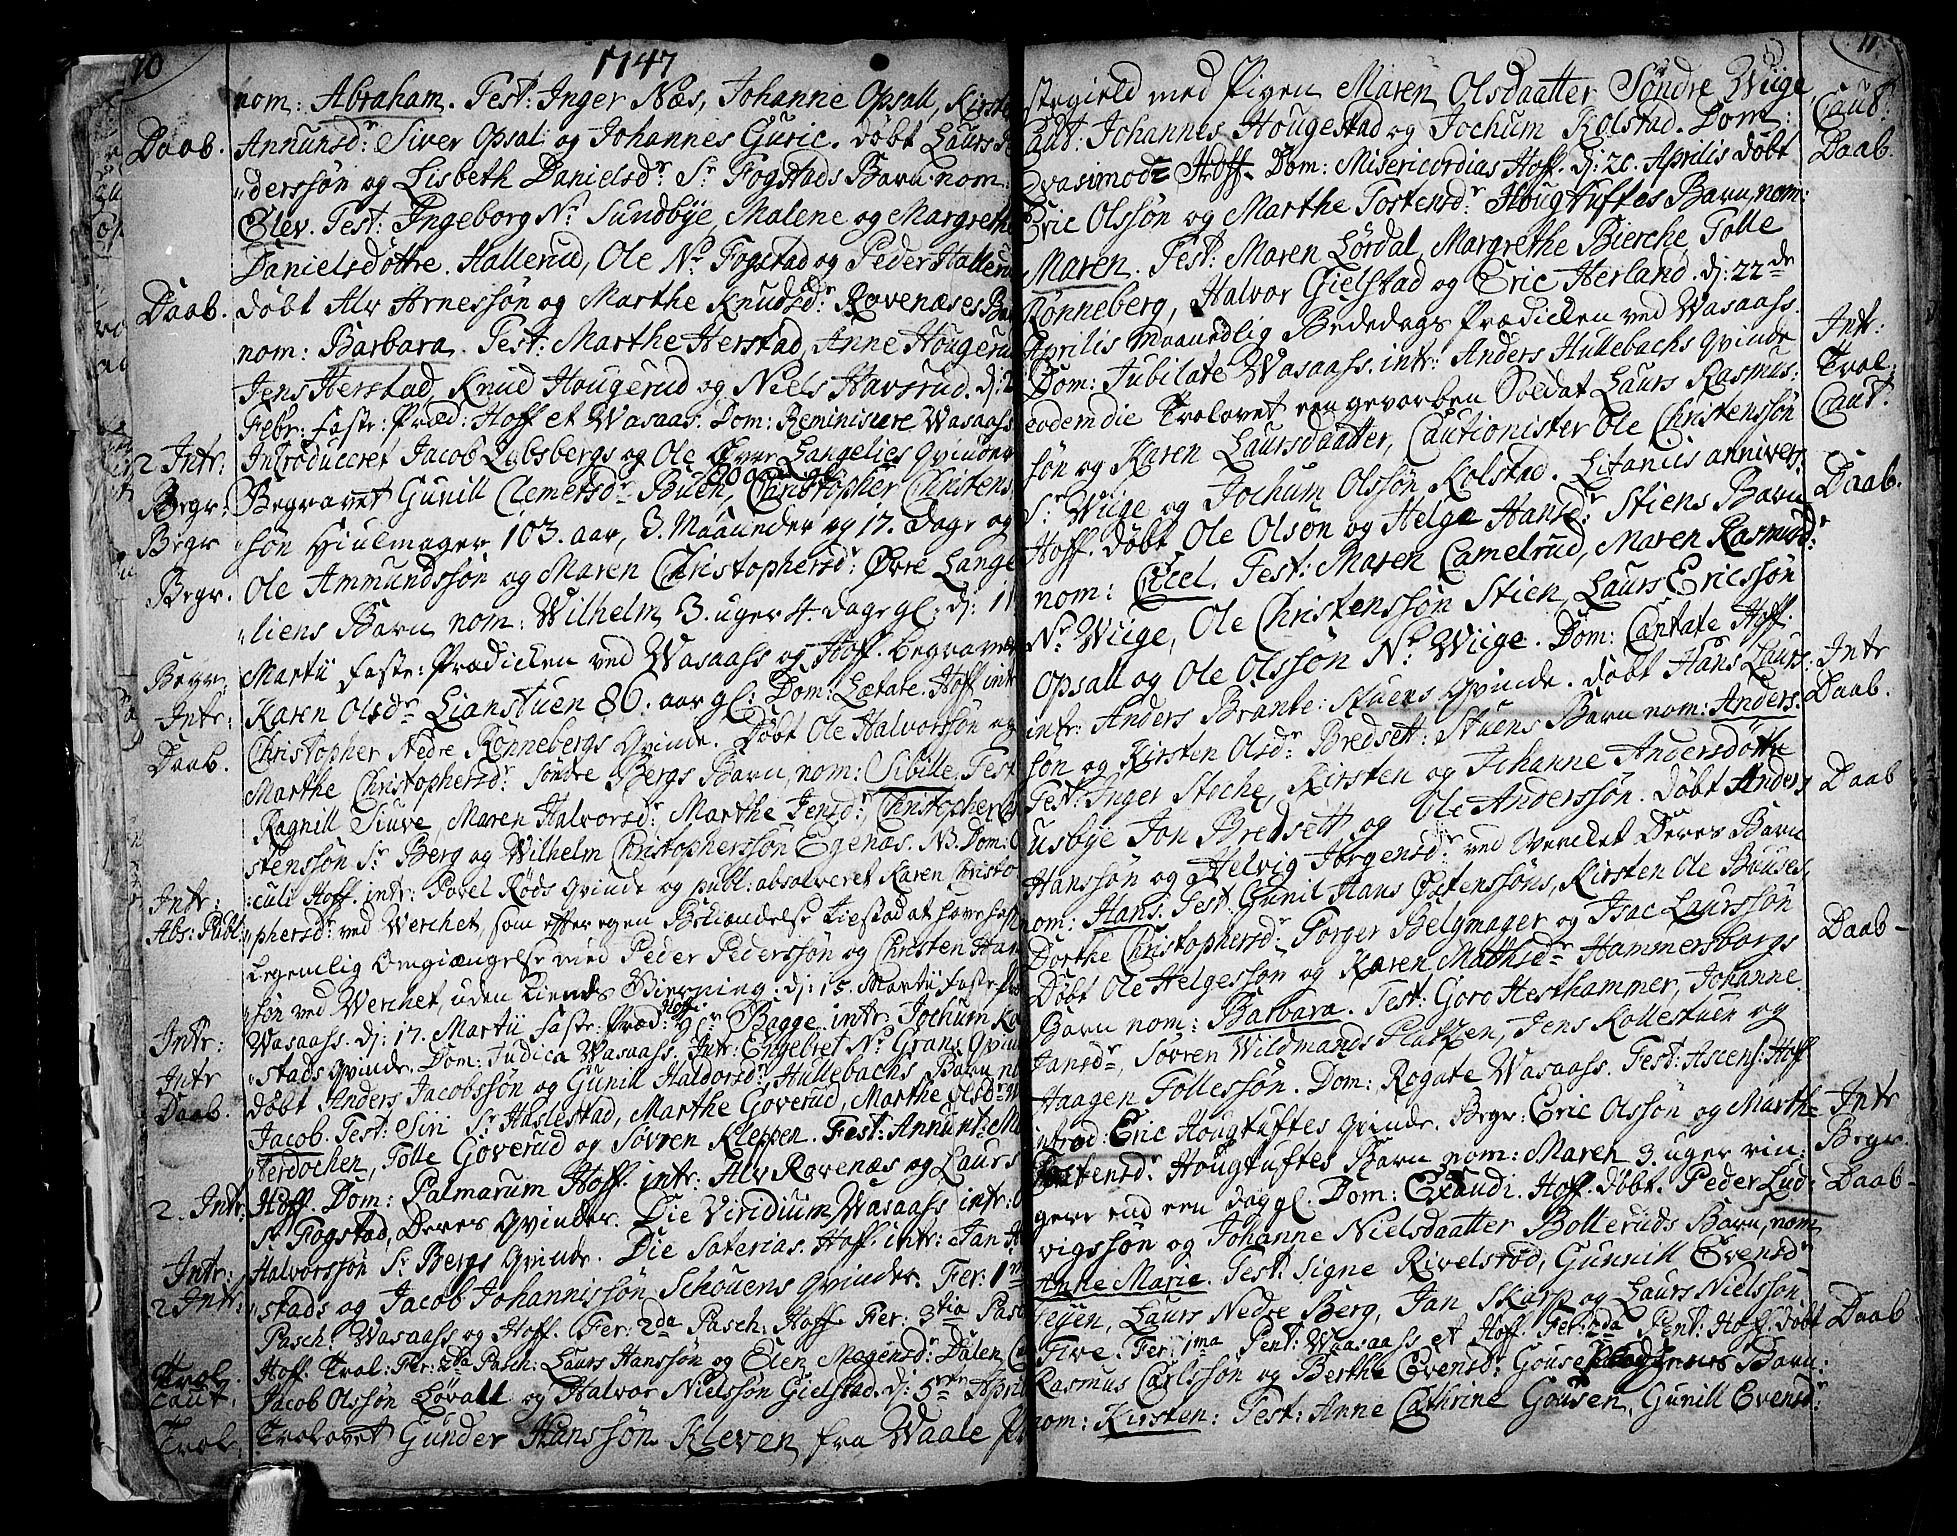 10
1747
nom: Abraham. Test: Inger Næs, Johanne Opsall, Kirst
Daab. Annunsdr: Siver Opsal: og Johannes Guric. døbt Laurs
"derssøn og Lisbeth Danielsdr Sr Fogstads Barn nom:
Elev. Test: Ingeborg Nr Sundbye, Malene og Margrethe
Danielsdøttre. Hallerud, Ole Nr Fogstad og Peder Halleru
Daab. døbt Alv Arnessøn og Marthe Knudsdr Rovenæses Ba
nom: Barbara. Test: Marthe Herstad, Anne Hougerud
Jens Herstad, Knud Hougerud og Niels Havsrud. dj: 2
Febr: faste: Præd: Hoff et Wasaas. Dom: Reminiscere Wasaass
2 Intr: Introduceret Jacob Labsbergs og Ole Langelies qvinder
Begr: Begravet Gunill Clemetsdr Buen, Christopher Christens
Begr "søn Hiulmager 103. aar, 3. Maaneder og 17. Dage og
Begr. Ole Ammundssøn og Maren Christophersdr: Øvre Lange
"liens Barn nom: Wilhelm 3. uger 4. dage gl: dj: 11
Begr: Martii faste: Prædicken ved Wasaass og Hoff. begravet
Intr: Karen Olsdr Lianstuen 86. aar gl: Dom: Lætare. Hoff intr
Daab. Christopher Nedre Rønnebergs qvinde. Døbt Ole Halvorssøn og
Marthe Christophersdr Søndre Bergs Barn, nom: Sibille, Test
Ragnill Tiuve, Maren Halvorsdr: Marthe Jensdr, Christopher Ch
stenssøn Sr Berg og Wilhelm Christopherssøn Egenæs. NB. Dom:
Intr: :culi Hoff. intr: Povel Røds qvinde og publ: absolveret Karen Christo
Abs: Publ: "phersdr ved Verchet, som efter egen Bekiendelse tilstad at have haft
Legemlig Omgiængelse med Peder Pederssøn og Christen Han
"søn ved Werchet, uden
dj: 15. Martii Faste
Intr: Wasaass. dj: 17. Martii faste: Præd: Hoff Hr Bagge. intr Jochum Ko
Intr "stads qvinde. Dom: Judica Wasaass. Intr: Engebret Nr Grans qvin
Daab. døbt Anders Jacobssøn og Gunill Haldorsdr, Hullebachs Barn n
Jacob. Test: Siri Sr Haslestad, Marthe Goverud, Marthe Olsdr
Verdochen, Tolle Goverud og Søvren Kleppen. Fest: Annunt: M
2. Intr: Hoff. Dom: Palmarum Hoff. intr: Alv Rovenæs og Laurs
Sr Fogstad, Deres qvinder. Die Viridium Wasaass intr:
Intr: Halvorssøn Sr Bergs qvinde. Die Soterias. Hoff. intr: Jan
2 Intr: "stads og Jacob Johannissøn Schouens qvinder. Fer: 1ma
Pasch: Wasaass og Hoff. Fer: 2da Pasch: Hoff. Fer: 3tia Pasc
Trol. Hoff. Trol: Fer: Pasch: Laurs Hanssøn og Eden Mogensdr: Dalen
Caut. Jacob Olssøn Løvall og Halvor Nielssøn Gielstad. dj: 5te April
Trol. Trolovet Gunder Hanssøn Kleven fra Waale
11.
stegield med Pigen Maren Olsdaatter Søndre Wiige,
Caut: Johannes Hougestad og Jochum Kolstad. Dom: Caut:
Qvasimod: Hoff. Dom: Misericordias Hoff. dj: 20. Aprilis døbt Daab.
Eric Olssøn og Marthe Tostensdr Hougtuftes Barn nom:
Maren. Test: Maren Lørdal, Margrethe Bierche, Tolle
Rønneberg, Halvor Gielstad og Eric Herland. dj: 22de
Aprilis maanedlig Bededags Prædicken ved Wasaass.
Dom: Jubilate Wasaass. intr: Anders Hullebachs qvinde Intr:
eodem die Trolovet een gevorben Soldat Laurs Rasmus: Trol:
søn og Karen Laursdaatter, Cautionister Ole Christenssøn Caut:
Sr Wiige og Jochum Olssøn Kolstad. Litaniis annivers:
Hoff. døbt Ole Olsøn og Helge Hansdr Stiens Barn Daab.
nom: Cicel. Test: Maren Camelrud, Maren Rasmusdr
Nr Wiige, Ole Christenssøn Stien, Laurs Ericssøn
Opsall og Ole Olssøn Nr Wiige. Dom: Cantate Hoff.
intr: Anders Brante: Stuens qvinde. døbt Hans Laurs: Intr
søn og Kirsten Olsdr: Bredsett: Stuens Barn nom: Anders. Daab.
Test: Inger Stoche, Kirsten og Johanne Andersdøttre
usbye Jon Bredsett og Ole Anderssøn. døbt Anders Daab
Hanssøn og Helvig Jørgensdr: ved Verchet Deres Barn
nom: Hans. Test: Gunil Hans Østenssøns, Kirsten Ole Bauses,
Dorthe Christophersdr Torger Belgmager og Isac Laurssøn
Døbt Ole Helgessøn og Karen Mathisdr Hammersborgs Daab-
Barn nom: Barbara. Test: Goro Hesthammer, Johanne
Jansdr, Søvren Wildmands Platzen, Jens Kollestuen og
Haagen Tollessøn. Dom: Rogate Wasaass. Fest: Ascens: Hoff
introd: Eric Hougtuftes qvinde. Begr: Eric Olssøn og Marthe Intr
Tostensdr: Hougtuftes Barn nom: Maren 3. uger rin: Begr.
gere end een dag gl. Dom: Exaudi. Hoff. døbt. Peder Lud: Daab-
vigssøn og Johanne Nielsdaatter Bolleruds Barn, nom
Anne Marie. Test: Signe Rivelsrød, Gunnill Evensdr
Teyen, Laurs Nedre Berg, Jan Skarp og Laurs Nielssøn
Five. Fer: 1ma Pent: Wasaass et Hoff. Fer: 2da Pent: Hoff. døbt Daab
Rasmus Carlssøn og Berthe Evensdr: Barn:
nom: Kirsten: Test: Anne Cathrine Gousen, Gunill Evensdr: